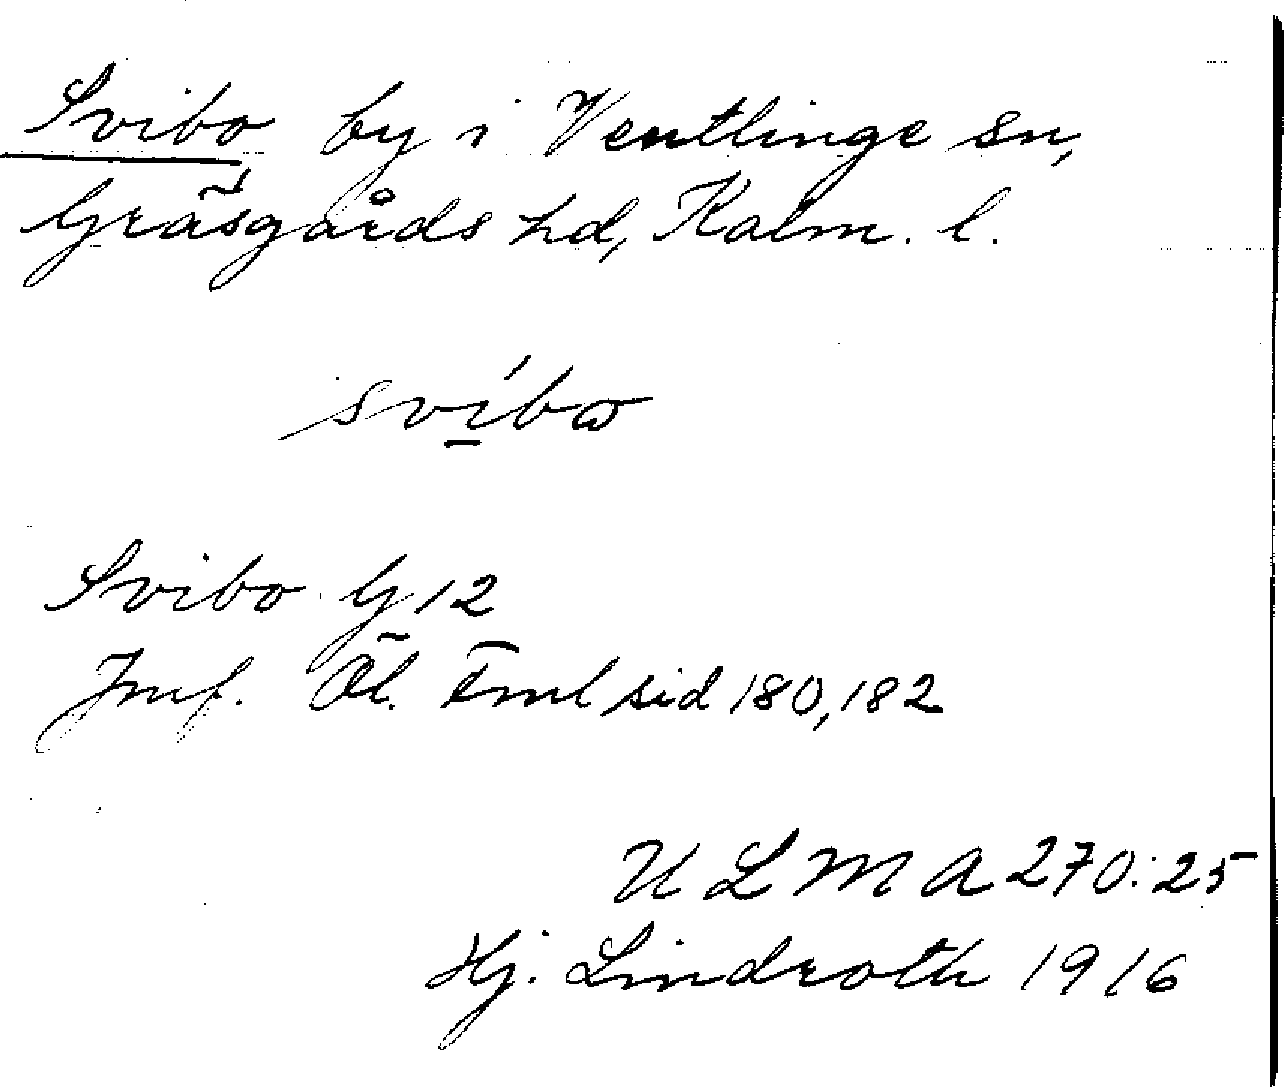 Svibo by i Ventlinge sn,
Gräsgårds hd, Kalm. l.
svíbω
Svibo G 12
Jmf. Öl. Fml sid 180, 182
ULMA 270:25
Hj. Lindroth 1916